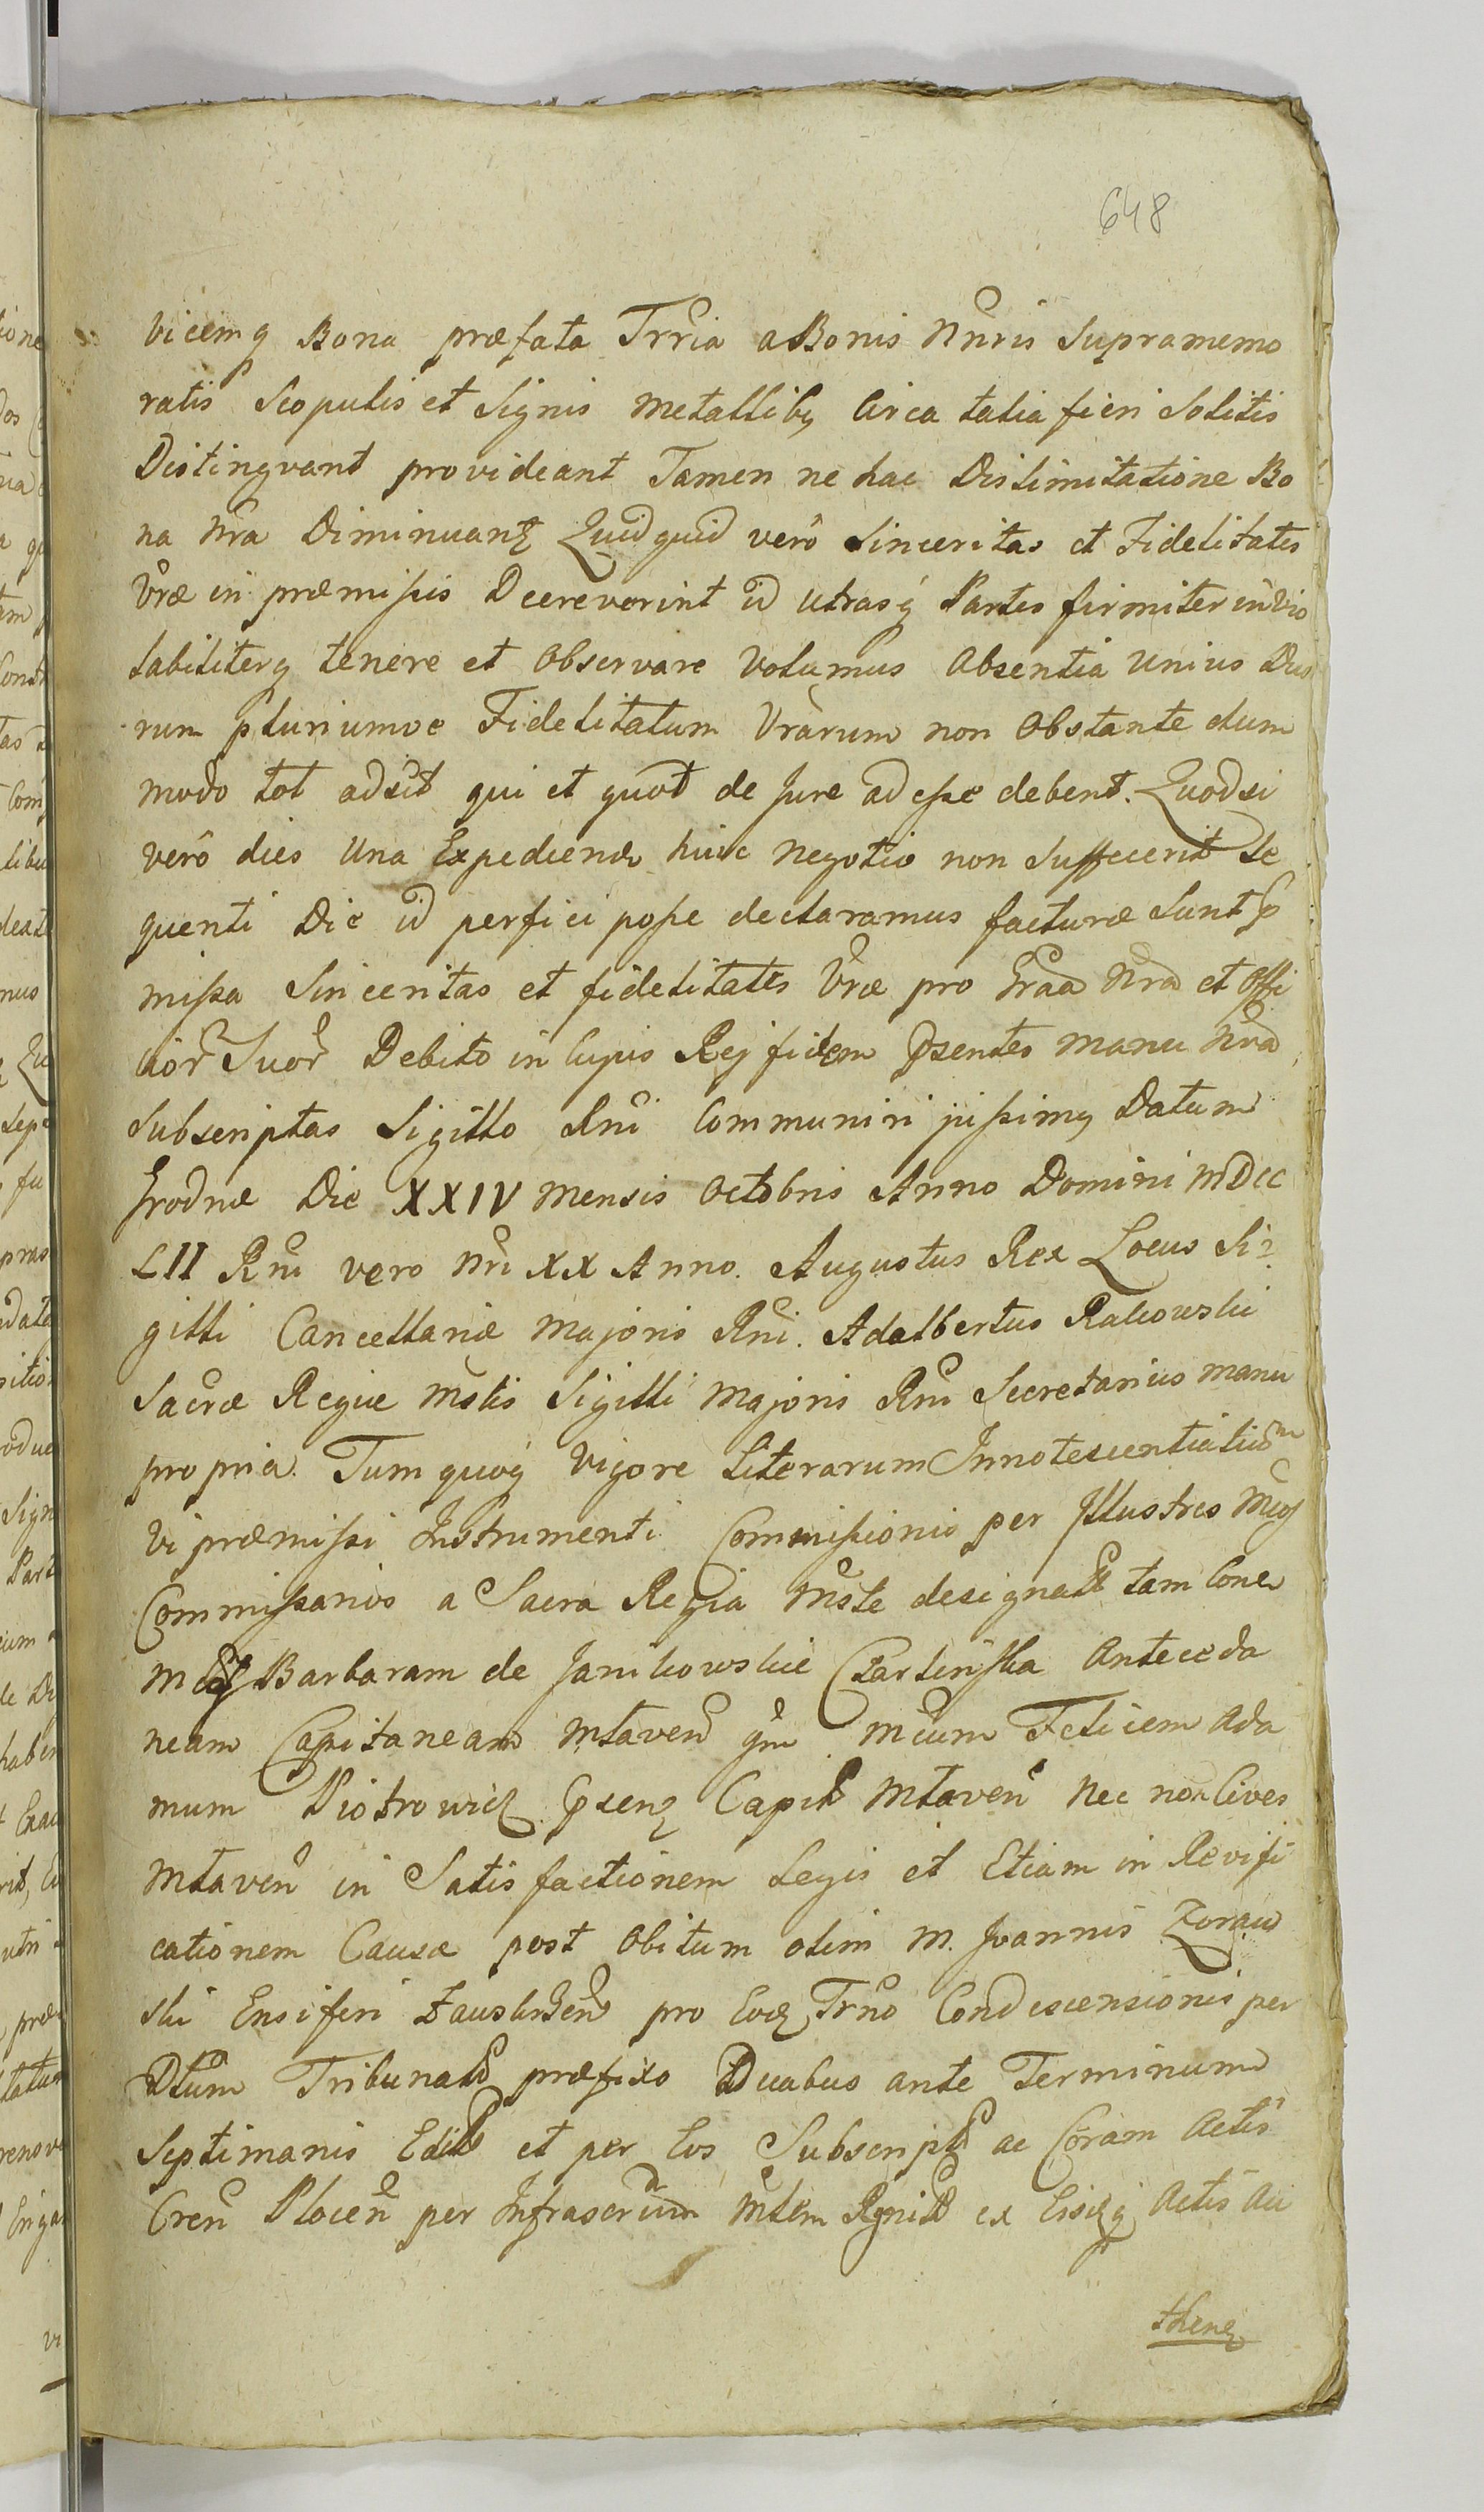 648
vicemq Bona præfata Trria a Bonis Nrris Supramemo
ratis Scopulis et Signis metallibq Circa talia fieri Solitis
Distingvant provideant Tamen ne hac Dislimitatione Bo
na Nra Diminuantz Quidquid verô Sinceritas et Fidelitates
Vræ in præmissis Decreverint id utrasq Partes firmiter invio
labiliterq tenere et Observare Volumus Absentia unius Duo
rum pluriumve Fidelitatum Vrarum non Obstante dum
modo tot adsit qui et quot de Jure adesse debent. Quodsi
verô dies Una Expediendo huic negotio non Suffecerit Se
quenti Die id perfici posse declaramus facturæ Sunt p
missa Sinceritas et fidelitates Vræ pro Graa Nra et Offi
cior Suor Debito in Cujus Rej fidem Psentes manu Nra
Subscriptas Sigillo Rni Communiri jussimq Datum
Grodnæ Die XXIV mensis Octobris Anno Domini MDCC
LII Rni vero Nri XX Anno. Augustus Rex Locus Si
gilli Cancellariæ Majoris Rni. Adalbertus Rakowski
Sacræ Regiæ Mstis Sigilli Majoris Rni Secretarius manu
propria. Tum quoq Vigore Literarum Innotescentialium
Vi præmissi Instrumenti Commissionis per Illustres Mcos
Commissarios a Sacra Regia Mste designat tam Contra
Mcas Barbaram de Janikowskie Czarlinska Anteceda
neam Capitaneam Mtaven qm Mcum Felicem Ada
mum Piotrowicz Psenz Capit Mtaven Nec non Cives
Mtaven in Satisfactionem Legis et Etiam in Revifi
cationem Causæ post Obitum olim M. Joannis Zoraw
ski Ensiferi Zauskrzen pro Eodz Trno Condescensionis per
Dtum Tribunal præfixo Duabus ante Terminum
Septimanis Edit et per Eos Subscript ac Coram Actis
Cren Plocen per Infrascrium Mtem Rgnit ex Eisdq Actis Au
thenz